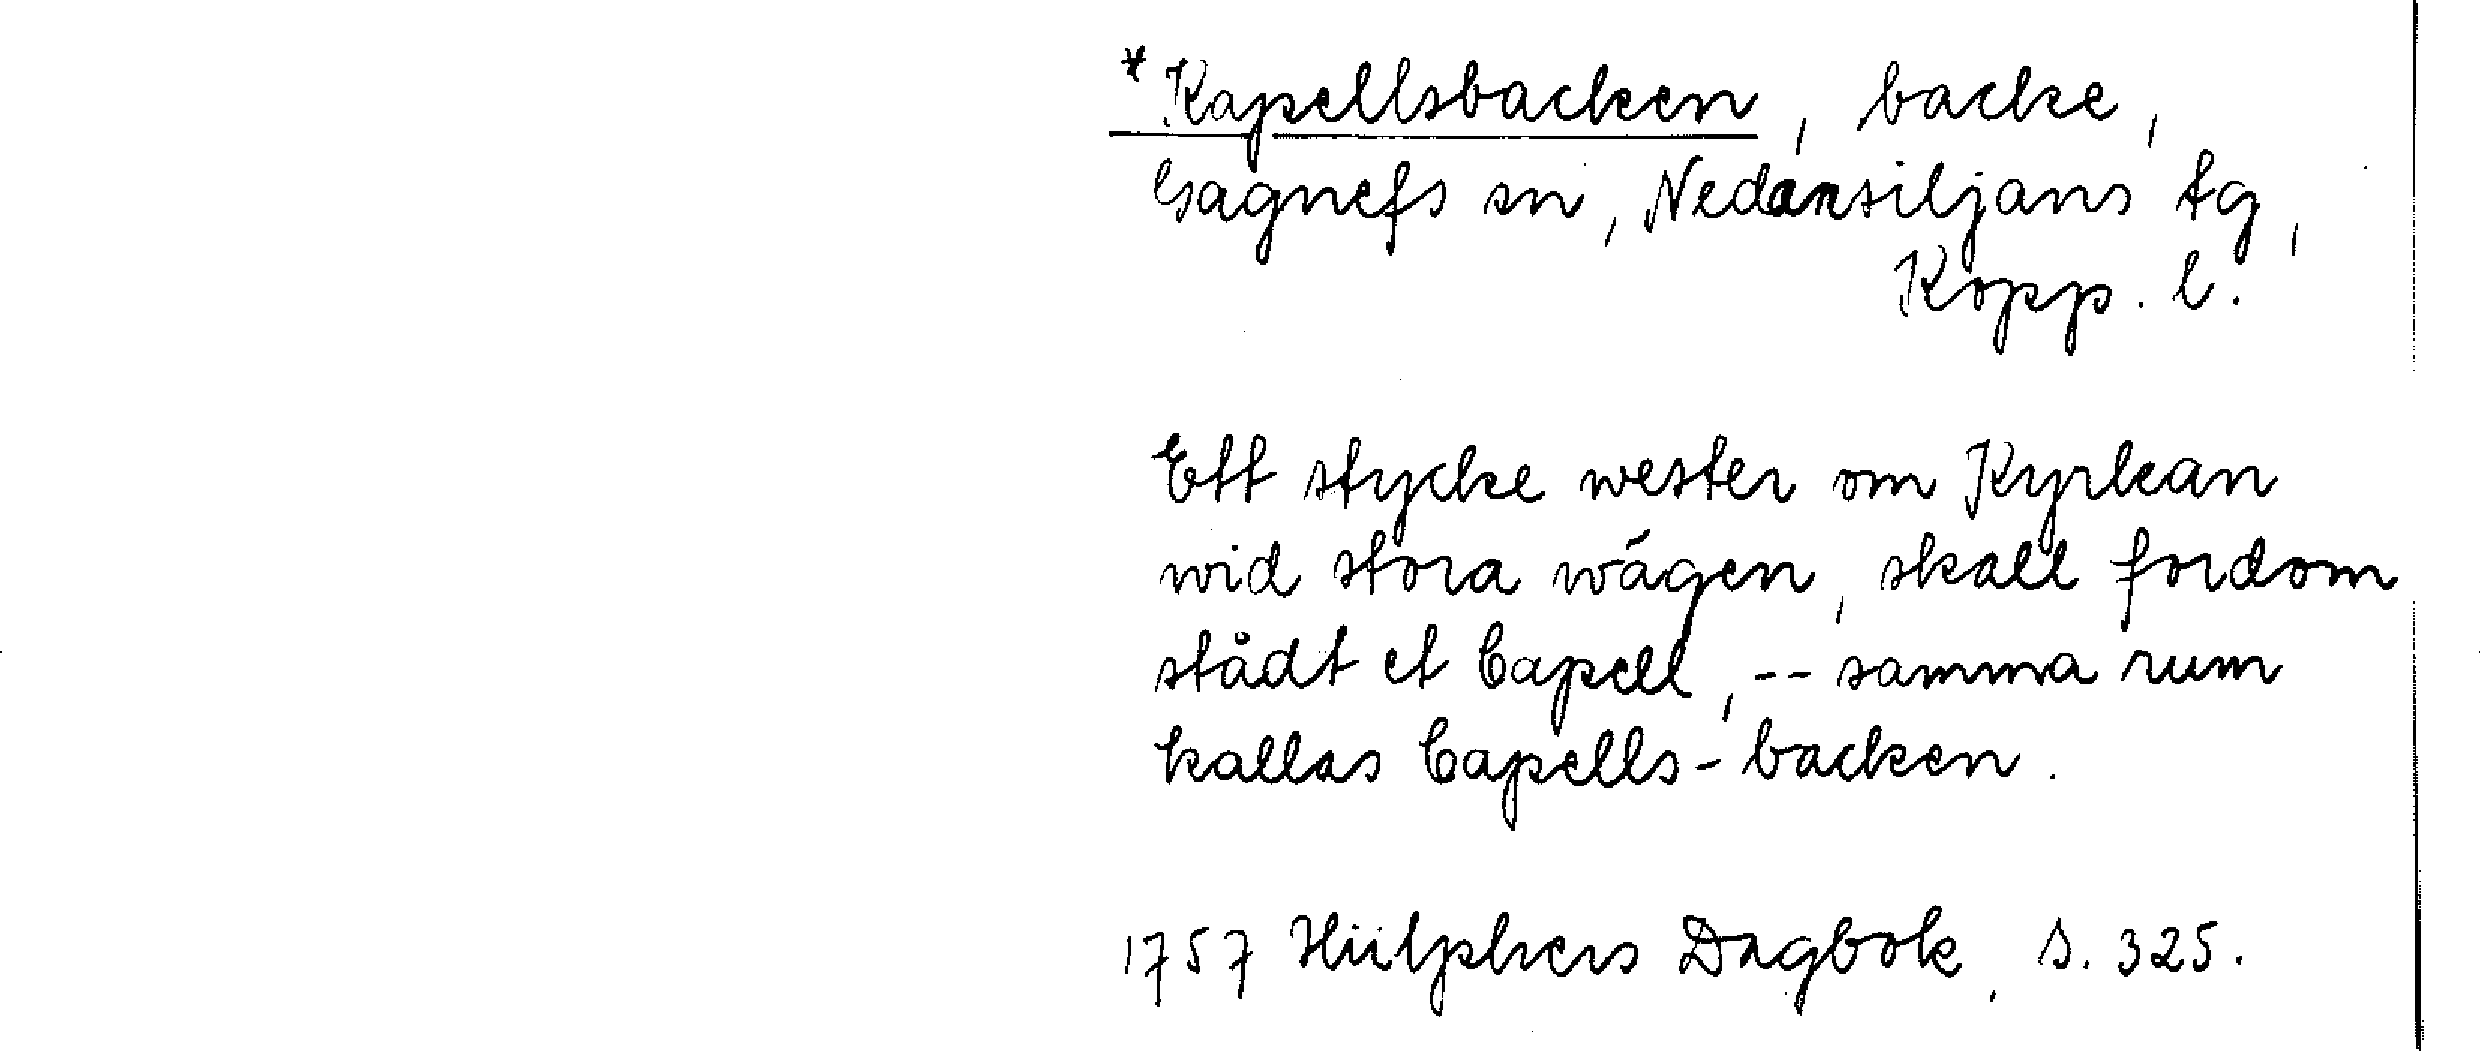 * Kapellsbacken, backe,
Gagnefs sn, Nedansiljans tg,
Kopp. l.
Ett stycke wester om Kyrkan
wid stora wägen, skall fordom
stådt et Capell, -- samma rum
kallas Capells-backen.
1757 Hülphers Dagbok, s. 325.